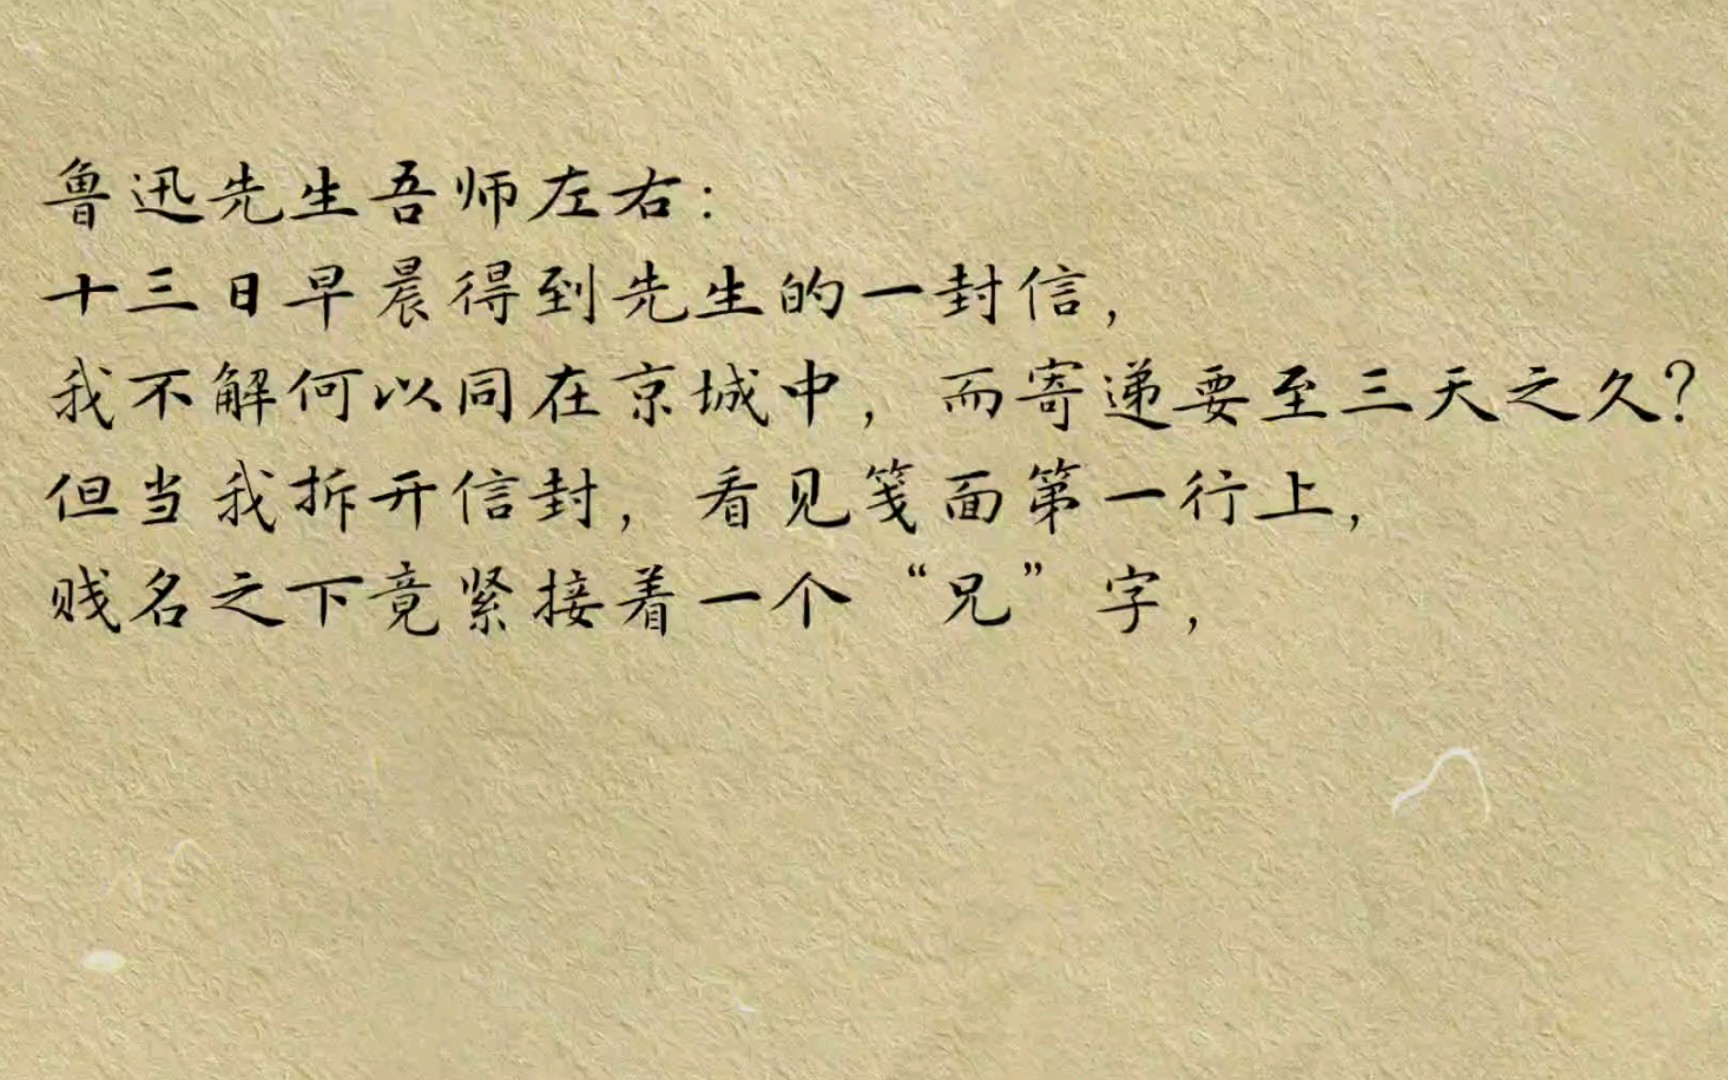 鲁迅先生吾师左右：
十三日早晨得到先生的一封信，
我不解何以同在京城中，而寄递要至三天之久？
但当我拆开信封，看见笺面第一行上，
贱名之下竟紧接着一个“兄”字，